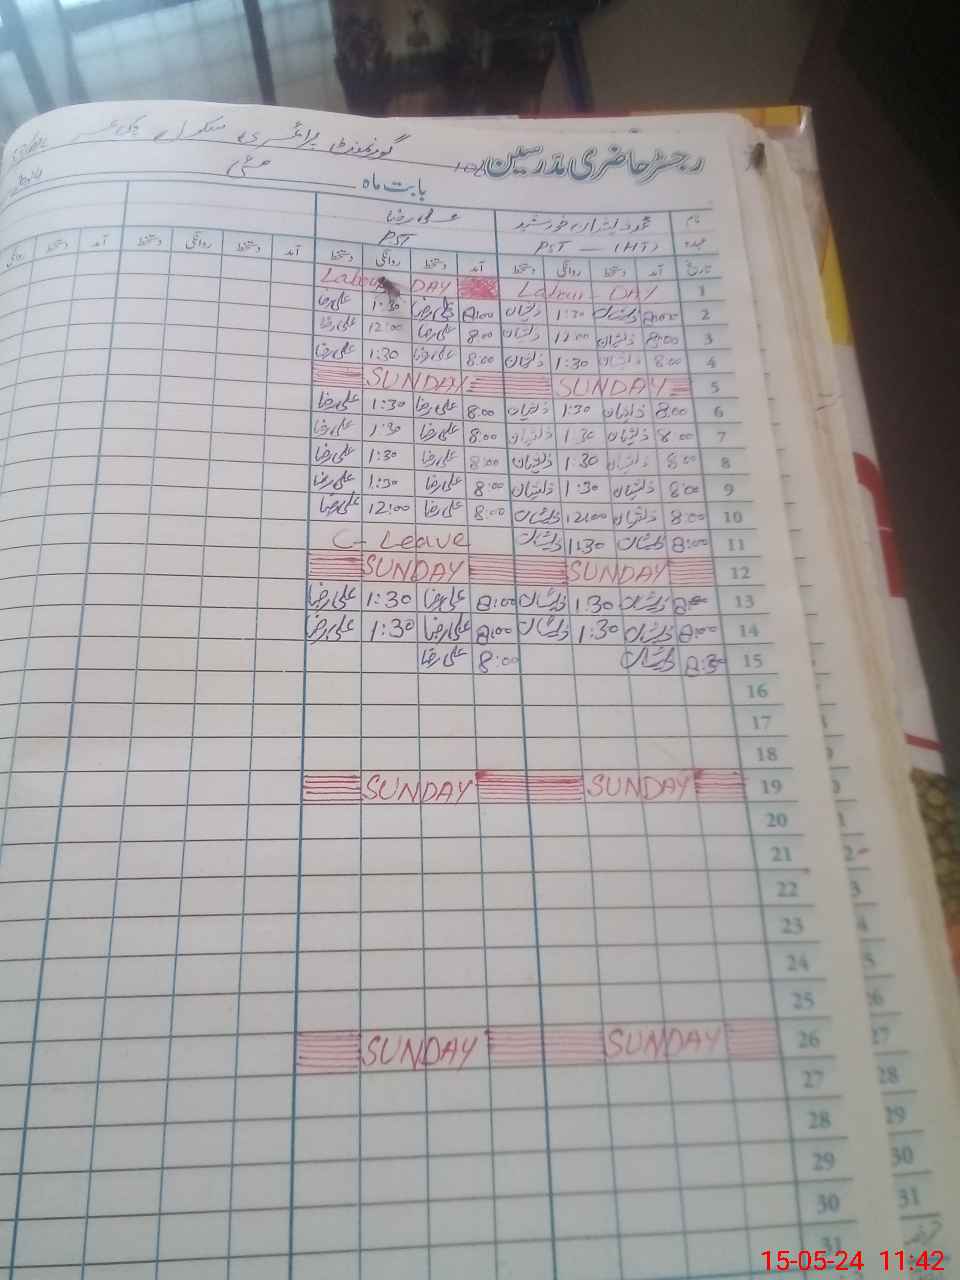 رجسٹر حاضری مدرسین گورنمنٹ پرائمری سکول
بابت ماہ مئی
نام علی رضا
عہدہ PST — (HT) PST
تاریخ آمد دستخط روانگی دستخط آمد دستخط روانگی دستخط آمد دستخط روانگی دستخط آمد دستخط روانگی
1 Labour DAY Labour DAY
2 8:00 ذیشان 1:30 ذیشان 8:00 علی رضا 1:30 علی رضا
3 8:00 ذیشان 12:00 ذیشان 8:00 علی رضا 12:00 علی رضا
4 8:00 ذیشان 1:30 ذیشان 8:00 علی رضا 1:30 علی رضا
5 SUNDAY SUNDAY
6 8:00 ذیشان 1:30 ذیشان 8:00 علی رضا 1:30 علی رضا
7 8:00 ذیشان 1:30 ذیشان 8:00 علی رضا 1:30 علی رضا
8 8:00 ذیشان 1:30 ذیشان 8:00 علی رضا 1:30 علی رضا
9 8:00 ذیشان 1:30 ذیشان 8:00 علی رضا 1:30 علی رضا
10 8:00 ذیشان 12:00 ذیشان 8:00 علی رضا 12:00 علی رضا
11 8:00 ذیشان 1:30 ذیشان C- Leave
12 SUNDAY SUNDAY
13 ذیشان 1:30 ذیشان 8:00 علی رضا 1:30 علی رضا
14 8:00 ذیشان 1:30 ذیشان 8:00 علی رضا 1:30 علی رضا
15 8:30 ذیشان 8:00 علی رضا
16
17
18
19 SUNDAY SUNDAY
20
21
22
23
24
25
26 SUNDAY SUNDAY
27
28
29
30
31
26
27
28
29
30
31
15-05-24 11:42